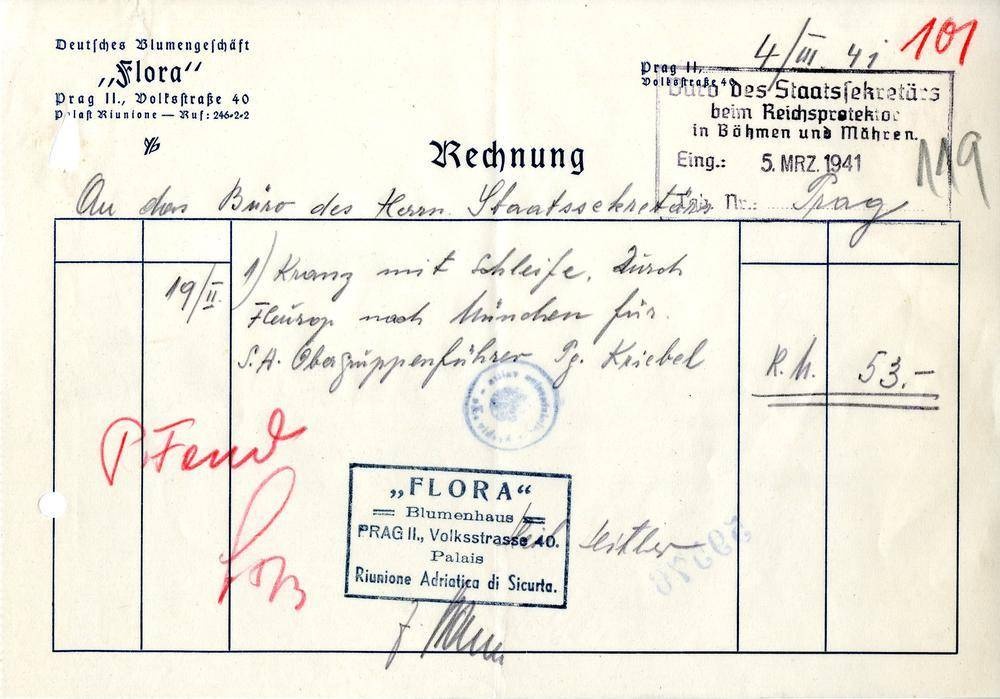 Deutsches Blumengeschäft
„Flora“
Prag II., Volksstraße 40
Palast Riunione — Ruf: 246-2-2
4/III. 41
101
Prag II.,
Volksstraße 40
Büro des Staatssekretärs
beim Reichsprotektor
in Böhmen und Mähren.
Eing.: 5. MRZ. 1941
Nr.:
119
Rechnung
An das Büro des Herrn Staatssekretärs Prag
19/II. 1) Kranz mit Schleife. Durch
Fleurop nach München für
S.A. Obergruppenführer Pg. Kriebel R.M. 53.—
„FLORA“
Blumenhaus
PRAG II., Volksstrasse 40.
Palais
Riunione Adriatica di Sicurta.